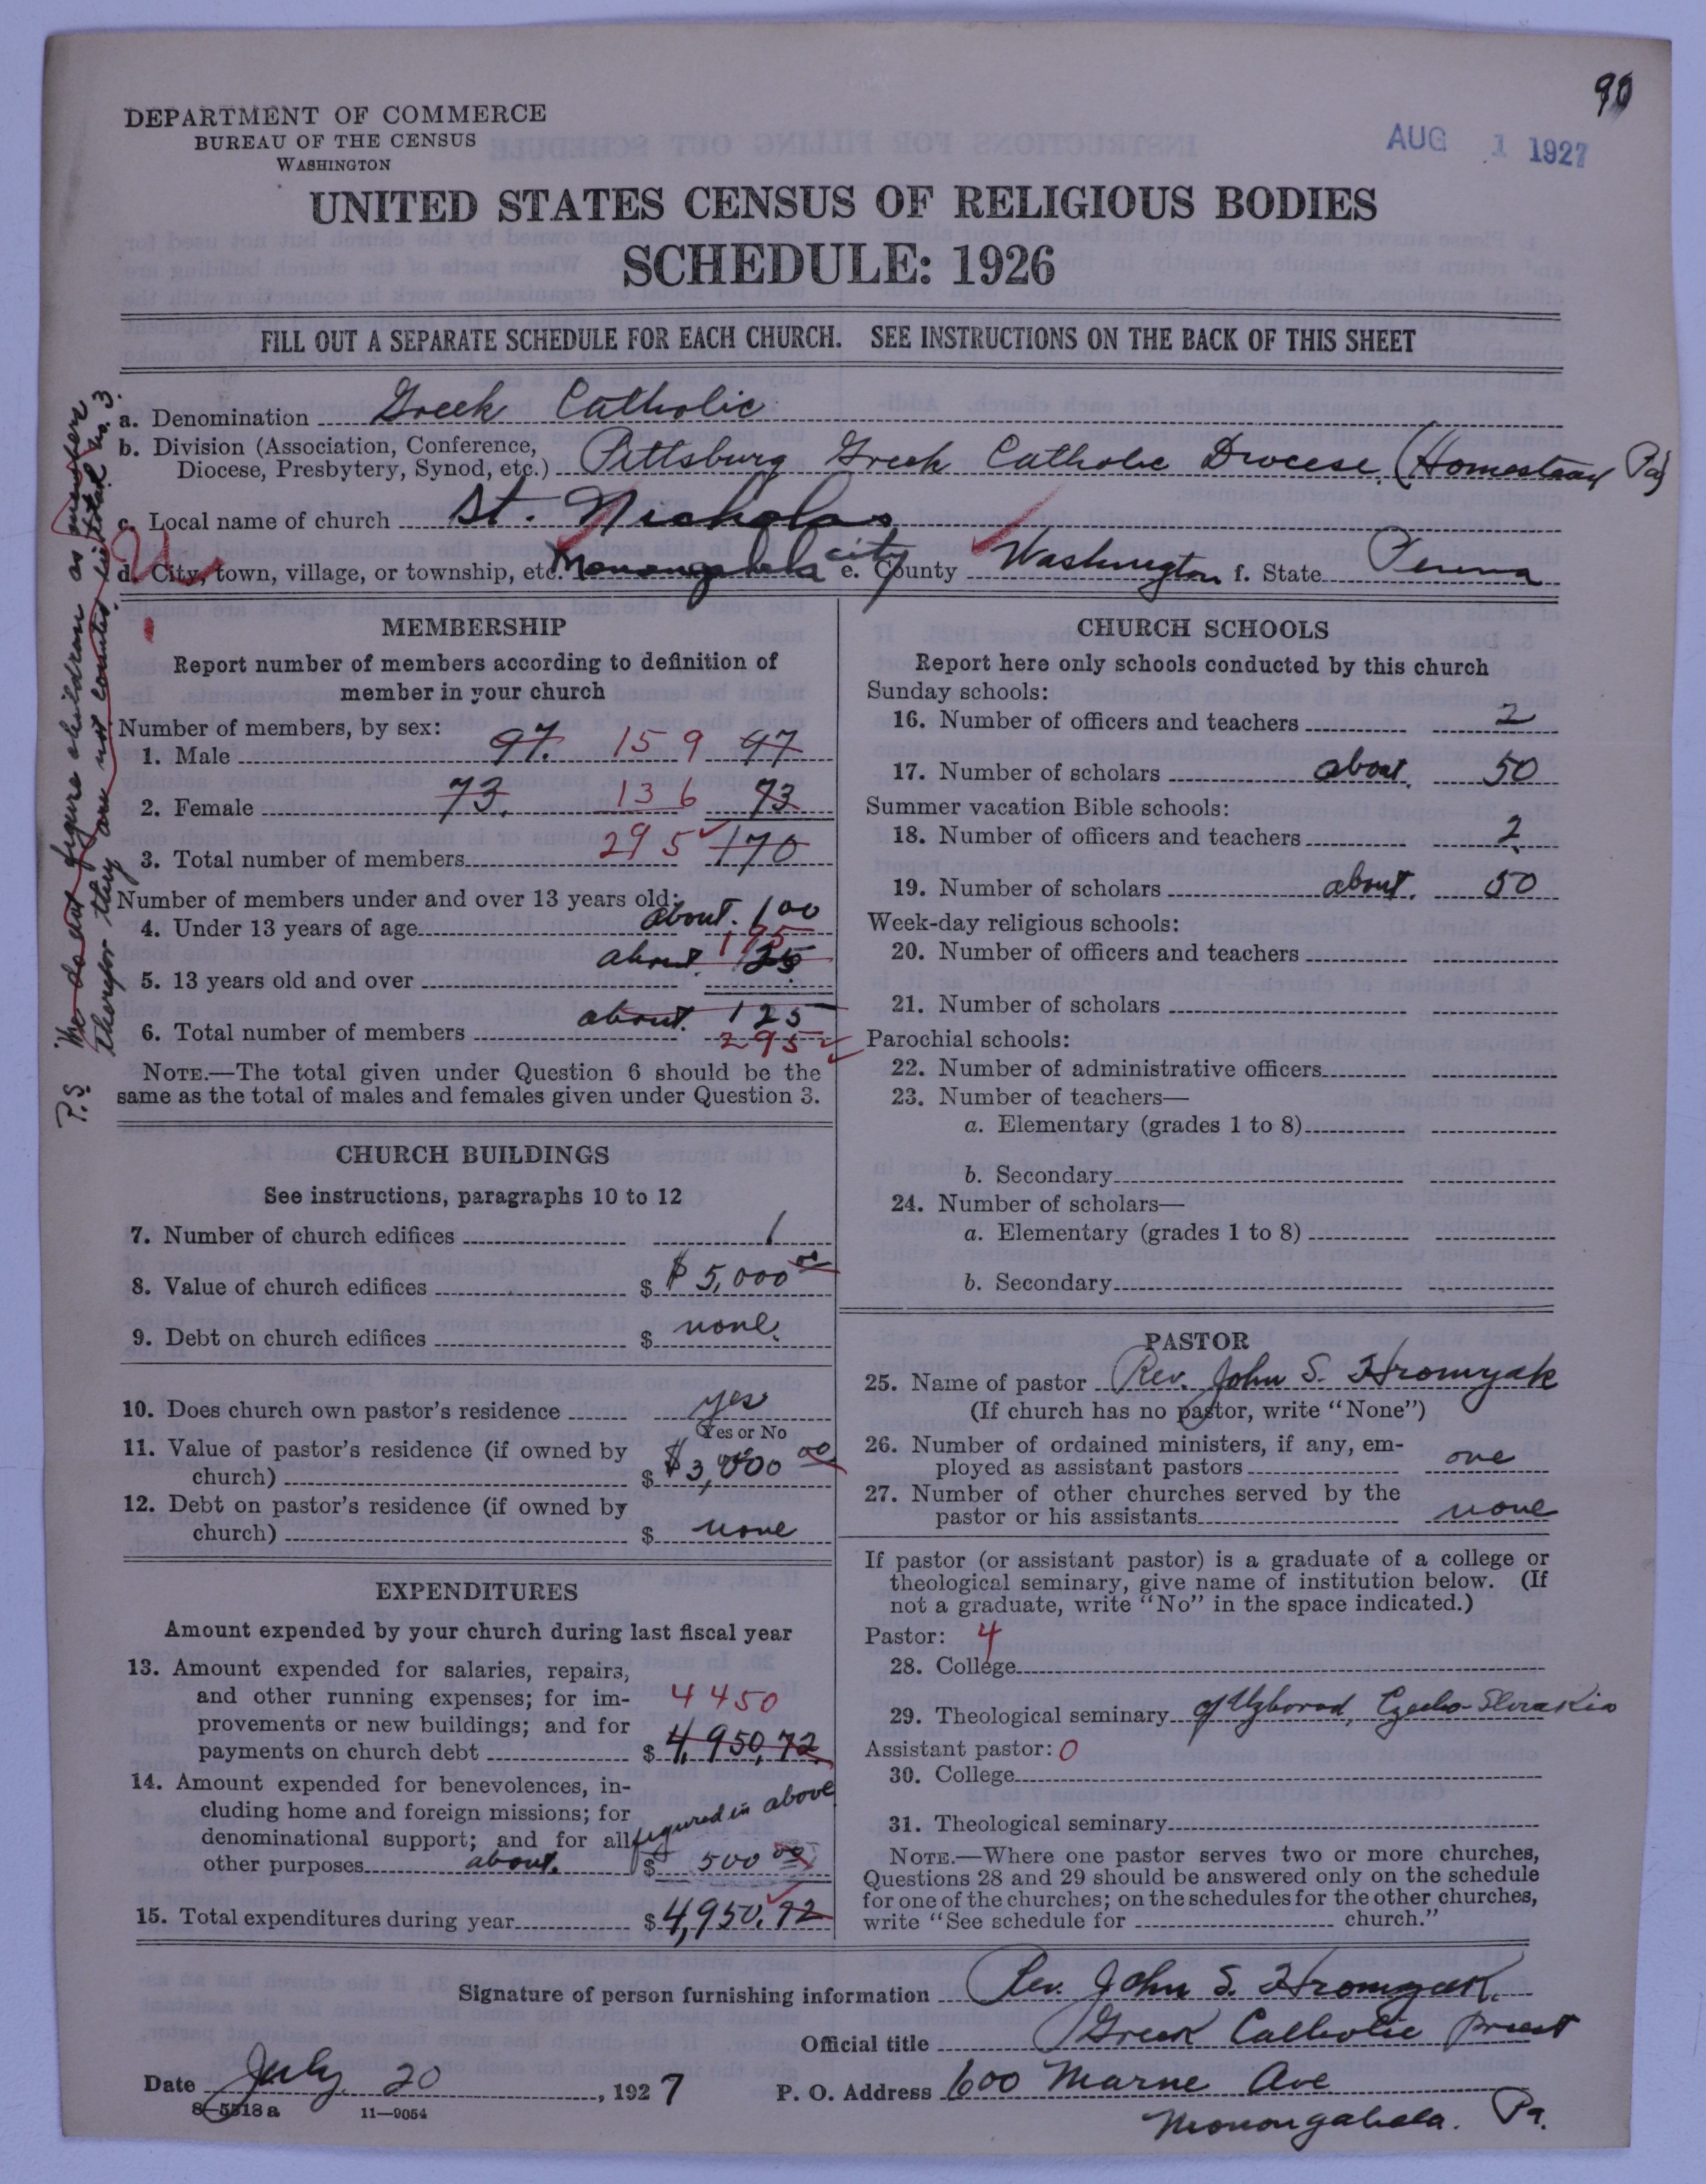 90
AUG 1 1927
DEPARTMENT OF COMMERCE
BUREAU OF THE CENSUS
WASHINGTON
UNITED STATES CENSUS OF RELIGIOUS BODIES
SCHEDULE: 1926
FILL OUT A SEPARATE SCHEDULE FOR EACH CHURCH. SEE INSTRUCTIONS ON THE BACK OF THIS SHEET
a. Denomination Greek Catholic
b. Division (Association, Conference,
Diocese, Presbytery, Synod, etc.) Pittsburg Greek Catholic Diocese. (Homestead Pa)
c. Local name of church St. Nicholas
d. City, town, village, or township, etc. Monongahela city e. County Washington f. State Penna
P.S. We do not figure children as members
therefor they are not counted in total No. 3.
MEMBERSHIP
Report number of members according to definition of
member in your church
Number of members, by sex:
1. Male 97. 159 97
2. Female 73. 136 73
3. Total number of members 295 170
Number of members under and over 13 years old:
4. Under 13 years of age about. 100
195
5. 13 years old and over about. 125
6. Total number of members about. 125
295
NOTE.—The total given under Question 6 should be the
same as the total of males and females given under Question 3.
CHURCH BUILDINGS
See instructions, paragraphs 10 to 12
7. Number of church edifices 1
8. Value of church edifices $ $5,000 00
9. Debt on church edifices $ none.
10. Does church own pastor's residence yes
Yes or No
11. Value of pastor's residence (if owned by
church) $ $3,000 00
12. Debt on pastor's residence (if owned by
church) $ none
EXPENDITURES
Amount expended by your church during last fiscal year
13. Amount expended for salaries, repairs,
and other running expenses; for im-
4450
provements or new buildings; and for
payments on church debt $ 4,950.72
14. Amount expended for benevolences, in-
cluding home and foreign missions; for
denominational support; and for all figured in above
other purposes about. $ 500 00
15. Total expenditures during year $ 4,950.72
CHURCH SCHOOLS
Report here only schools conducted by this church
Sunday schools:
16. Number of officers and teachers 2
17. Number of scholars about. 50
Summer vacation Bible schools:
18. Number of officers and teachers 2
19. Number of scholars about. 50
Week-day religious schools:
20. Number of officers and teachers
21. Number of scholars
Parochial schools:
22. Number of administrative officers
23. Number of teachers—
a. Elementary (grades 1 to 8)
b. Secondary
24. Number of scholars—
a. Elementary (grades 1 to 8)
b. Secondary
PASTOR
25. Name of pastor Rev. John S. Hromyak
(If church has no pastor, write "None")
26. Number of ordained ministers, if any, em-
ployed as assistant pastors one
27. Number of other churches served by the
pastor or his assistants none
If pastor (or assistant pastor) is a graduate of a college or
theological seminary, give name of institution below. (If
not a graduate, write "No" in the space indicated.)
Pastor: 4
28. College
29. Theological seminary of Uzhorod, Czecho-Slovakia
Assistant pastor: 0
30. College
31. Theological seminary
NOTE.—Where one pastor serves two or more churches,
Questions 28 and 29 should be answered only on the schedule
for one of the churches; on the schedules for the other churches,
write "See schedule for church."
Signature of person furnishing information Rev. John S. Hromyak.
Official title Greek Catholic Priest
Date July 20, 1927 P. O. Address 600 Marne Ave
Monongahela. Pa.
8—5518a 11—9054